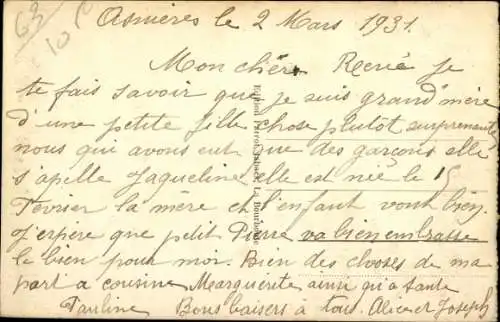 63
10
Asnières le 2 Mars 1931.
Mon chér René je
te fais savoir que je suis grand'mère
d'une petite fille chose plutôt surprenante
nous qui avons eut que des garçons elle
s'apelle Jaqueline elle est née le 15
Fevrier la mère et l'enfant vont bien.
J'espère que petit Pierre va bien embrasse
le bien pour moi. Bien des choses de ma
part a cousine Marguerite ainsi qu'a tante
Pauline Bons baisers à tous. Alice et Joseph
La Bourboule